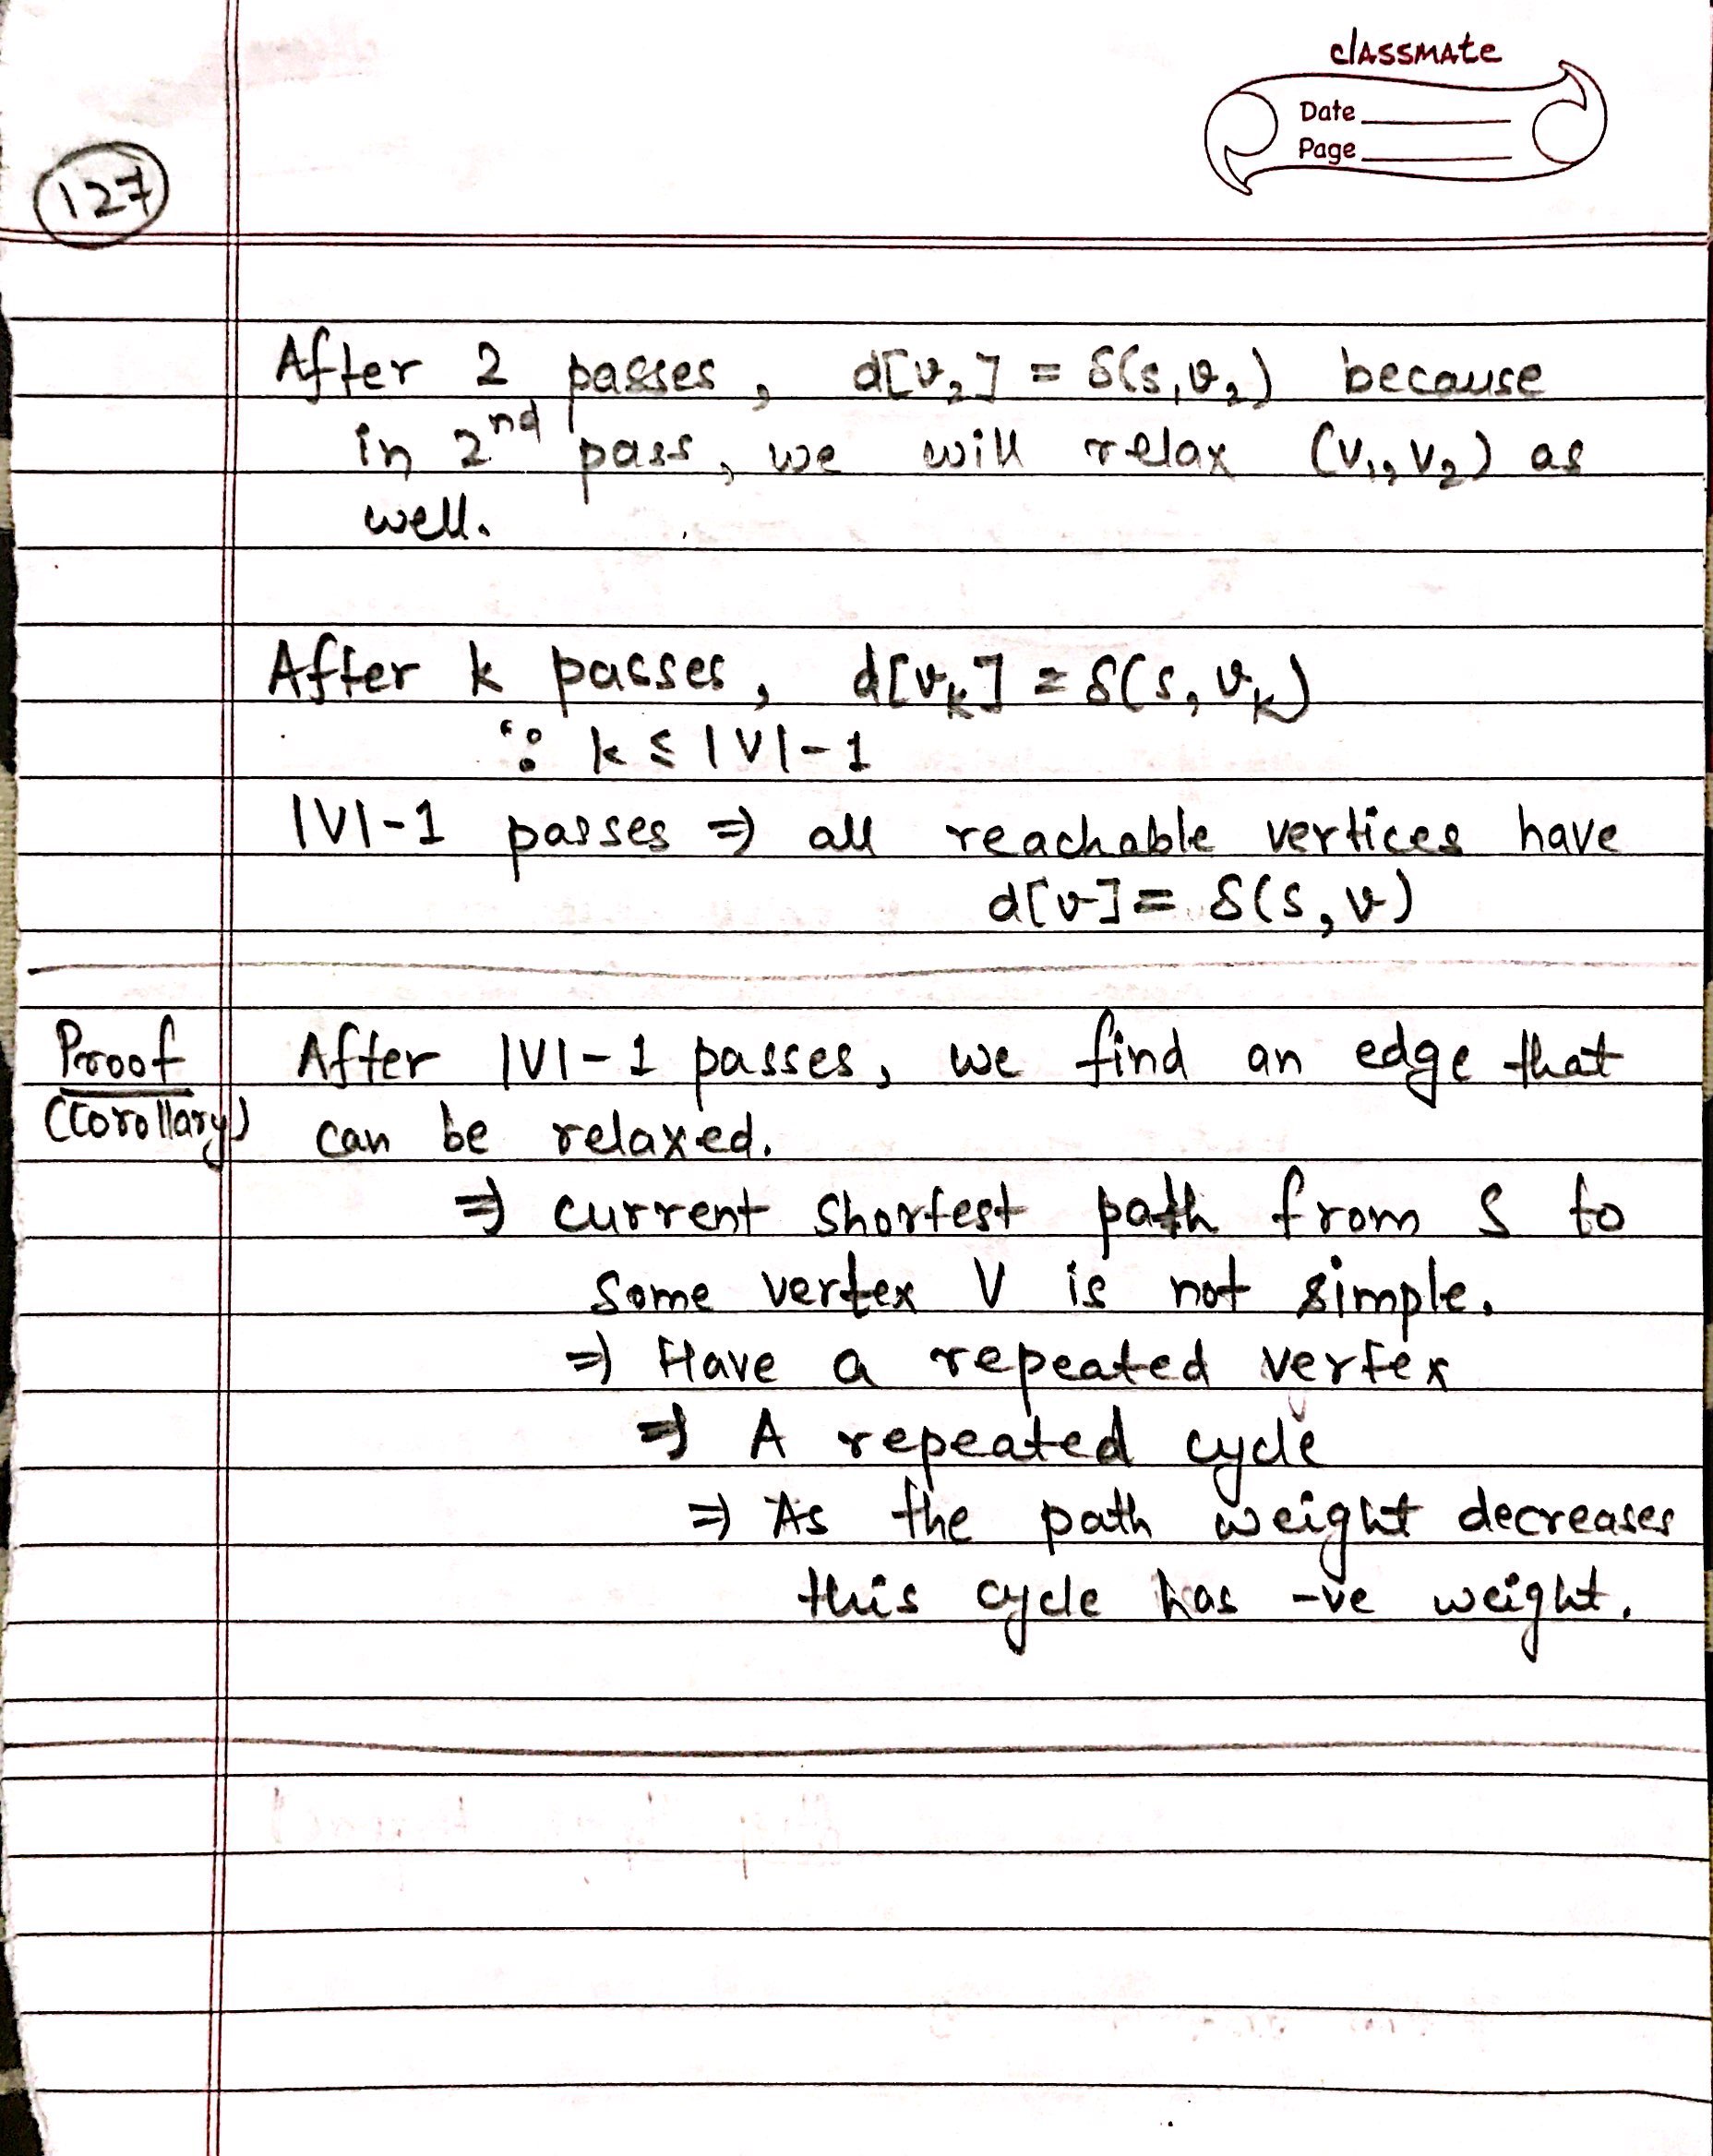 classmate
Date
Page
127
After 2 passes, d[v₂] = δ(s,v₂) because
in 2nd pass, we will relax (v₁, v₂) as
well.
After k passes, d[vₖ] = δ(s, vₖ)
∵ k ≤ |V|-1
|V|-1 passes ⇒ all reachable vertices have
d[v] = δ(s, v)
Proof
(Corollary)
After |V|-1 passes, we find an edge that
can be relaxed.
⇒ current shortest path from s to
some vertex V is not simple.
⇒ Have a repeated vertex
⇒ A repeated cycle
⇒ As the path weight decreases
this cycle has -ve weight.